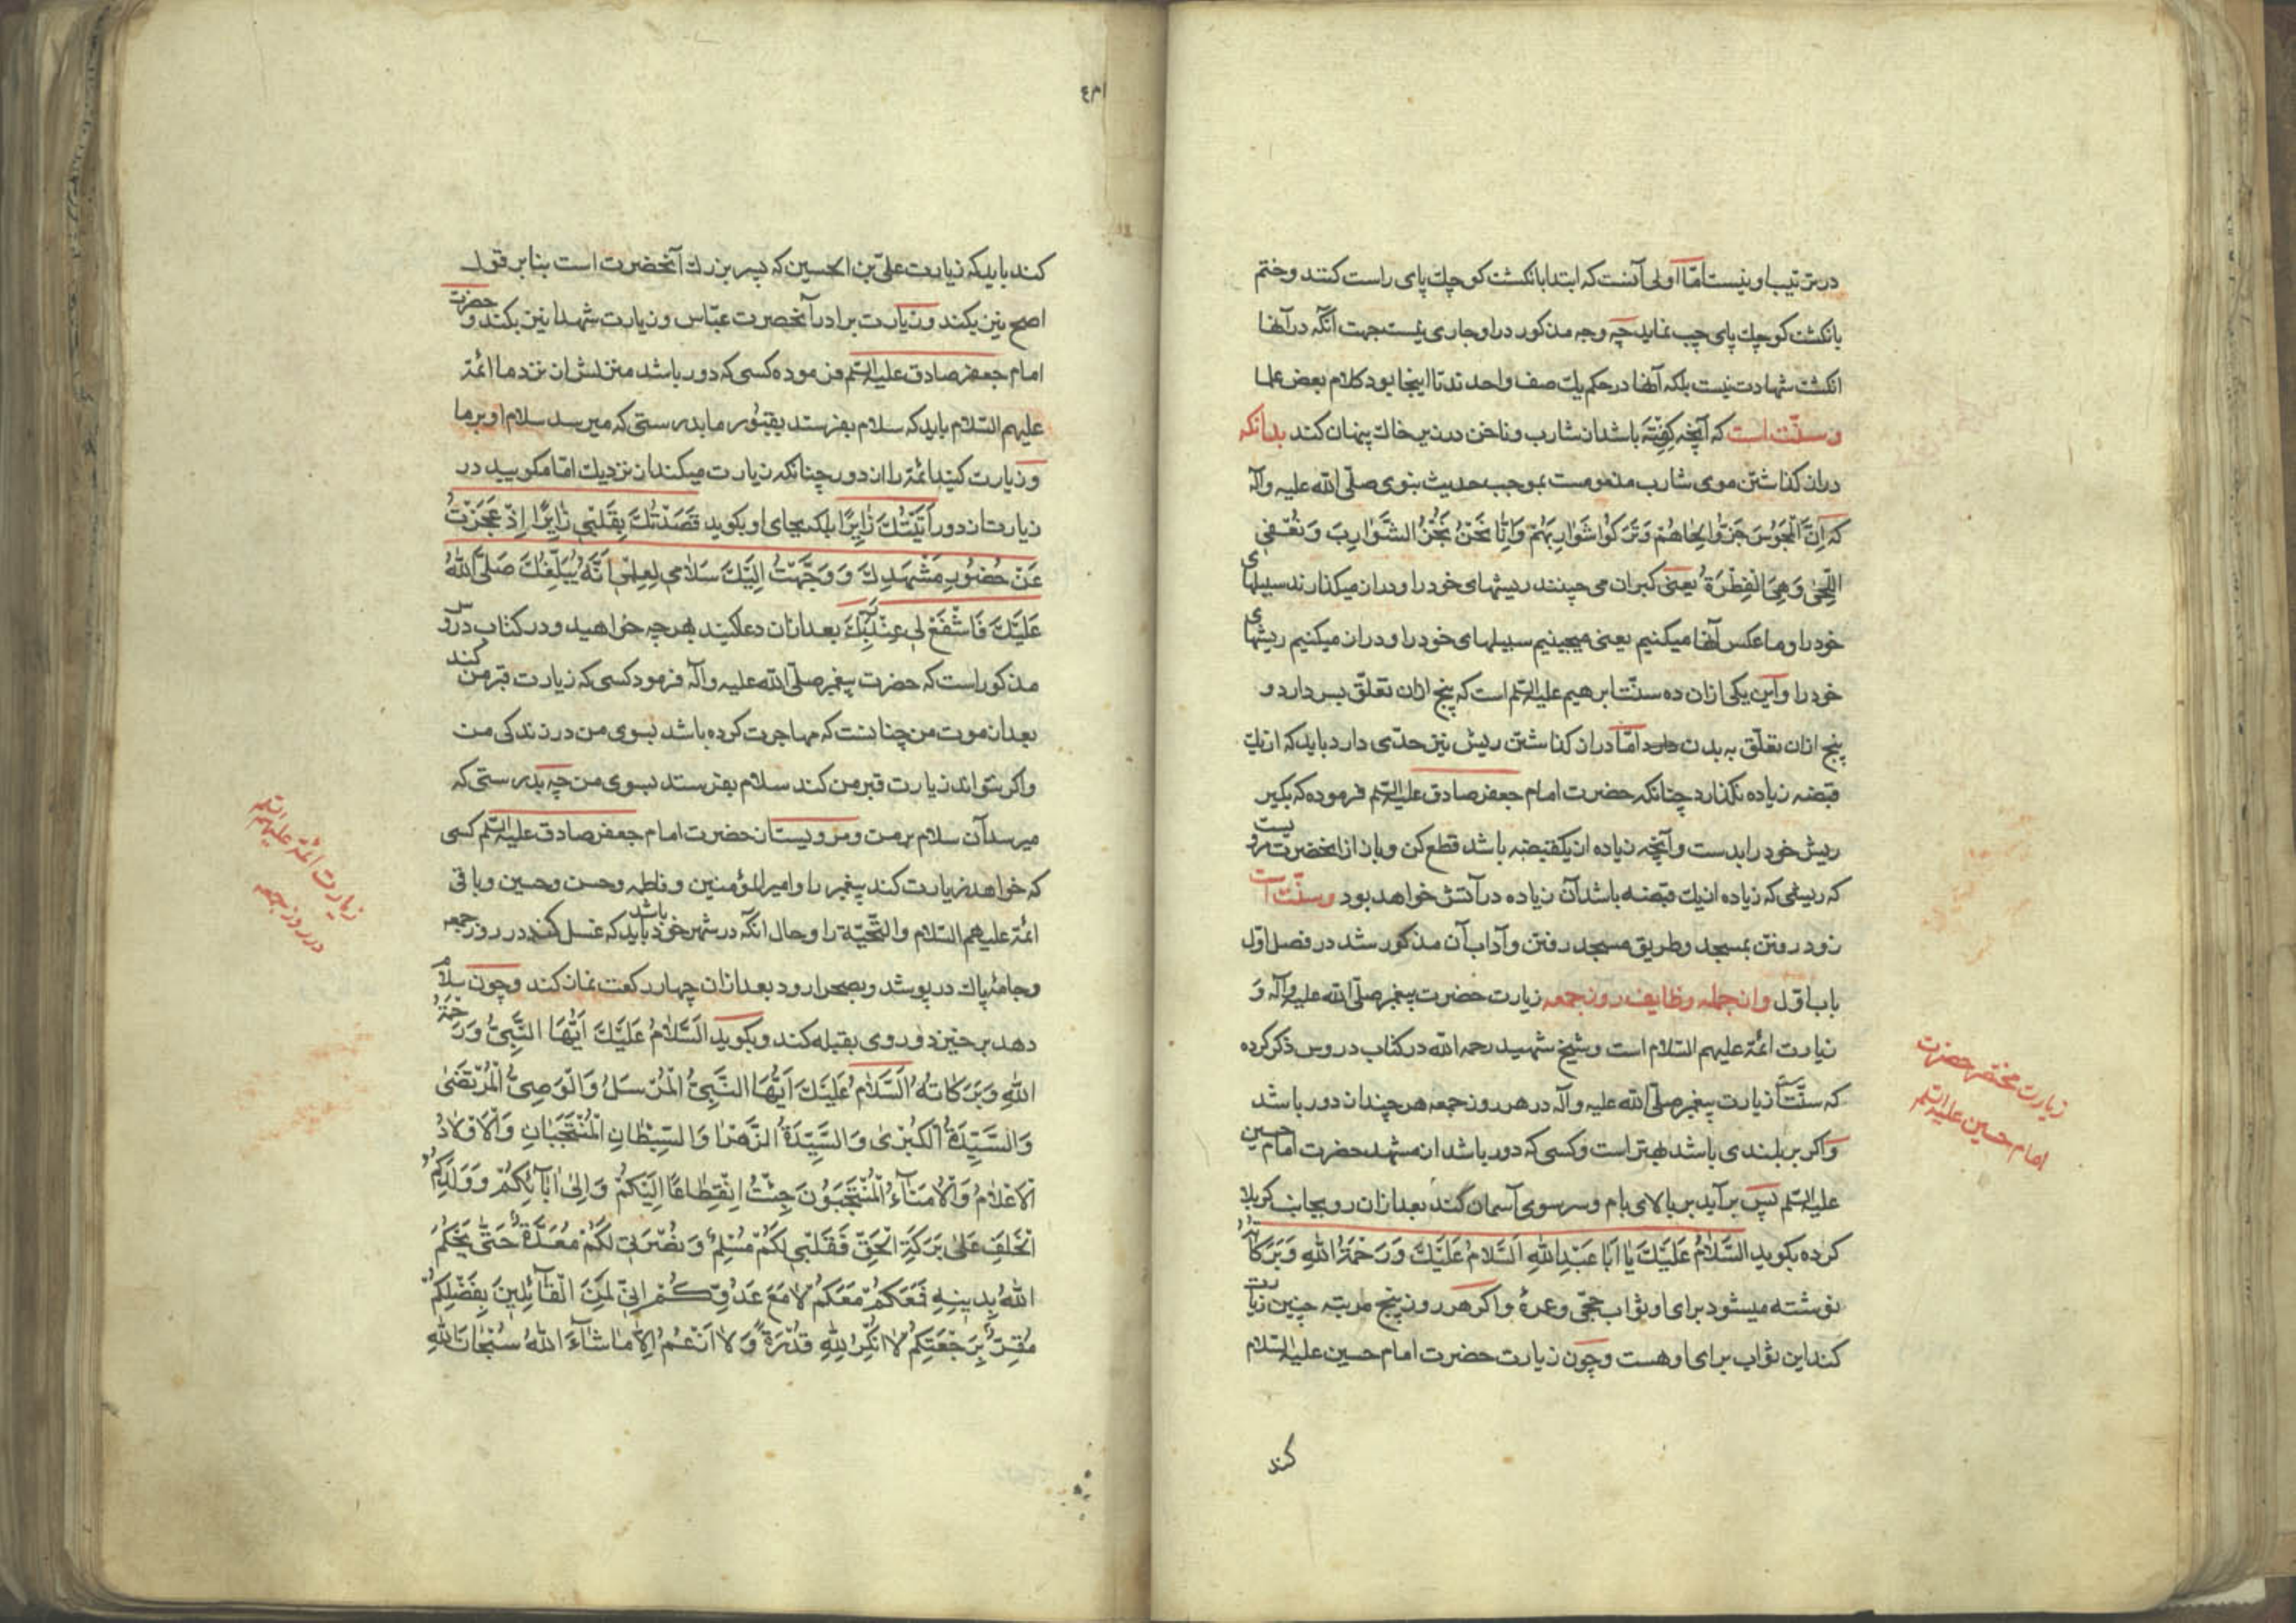 در ترتیب او نیست اما اولی آنست که ابتدا بانکشت کوچك پای راست کنند و ختم
بانکشت کوچك پای چپ نماید چه وجه مذکور در او جاری نیست جهت آنکه در آنها
انکشت شهادت نیست بلکه آنها در حکم یك صف واحدند تا اینجا بود کلام بعض علما
و سنّت است که آنچه گرفته باشد از شارب و ناخن در زیر خاك پنهان کند بدانکه
دراز کذاشتن موی شارب مذمومست بموجب حدیث نبوی صلّی الله علیه وآله
که اِنَّ الْمَجُوسَ جَزُّوا لِحَاهُمْ وَتَرَكُوا شَوَارِبَهُمْ وَاِنَّا نَحْنُ نَجُزُّ الشَّوَارِبَ وَنُعْفِي
اللِّحٰى وَهِىَ الْفِطْرَةُ یعنی کبران می چینند ریشهای خود را و دراز میکذارند سبیلهای
خود را و ما عکس آنها میکنیم یعنی میچینیم سبیلهای خود را و دراز میکنیم ریشهای
خود را و این یکی از ان ده سنّت ابرهیم علیه السّلم است که پنج ازان تعلّق بسر دارد و
پنج ازان تعلّق به بدن دارد امّا دراز کذاشتن ریش نیز حدّی دارد باید که از یك
قبضه زیاده نکذارد چنانکه حضرت امام جعفر صادق علیه السّلم فرموده که بکیر
ریش خود را بدست و آنچه زیاده از یکقبضه باشد قطع کن و باز از انحضرت مرویست
که ریشی که زیاده از یك قبضه باشد آن زیاده در آتش خواهد بود و سنّت است
زود رفتن بمسجد و طریق مسجد رفتن و آداب آن مذکور شد در فصل اوّل
باب اوّل و از جمله وظایف روز جمعه زیارت حضرت پیغمبر صلّی الله علیه وآله و
زیارت ائمّه علیهم السّلام است و شیخ شهید رحمه الله در کتاب دروس ذکر کرده
که سنّت است زیارت پیغمبر صلّی الله علیه وآله در هر روز جمعه هر چند از دور باشد
و اکر بر بلندی باشد بهتر است و کسی که دور باشد از مشهد حضرت امام حسین
علیه السّلم پس برآید بر بالای بام و سر سوی آسمان کند بعد ازان رو بجانب کربلا
کرده بکوید السَّلَامُ عَلَيْكَ يَا اَبَا عَبْدِاللهِ اَلسَّلَامُ عَلَيْكَ وَرَحْمَةُ اللهِ وَبَرَكَاتُهُ
نوشته میشود برای او ثواب حجّی و عمرهٔ و اکر هر روز پنج مرتبه چنین زیارت
کند این ثواب برای او هست و چون زیارت حضرت امام حسین علیه السّلام
کند
زیارت مختصر حضرت
امام حسین علیه السّلم
کند باید که زیارت علیّ بن الحسین که پسر بزرك آنحضرت است بنا بر قول
اصح نیز بکند و زیارت برادر آنحضرت عبّاس و زیارت شهدا نیز بکند و حضرت
امام جعفر صادق علیه السّلم فرموده کسی که دور باشد منزلش از نزد ما ائمّه
علیهم السّلام باید که سلام بفرستد بقبور ما بدرستی که میرسد سلام او بر ما
و زیارت کنید ائمّه را از دور چنانکه زیارت میکنید از نزدیك امّا مکویید در
زیارت از دور اَتَيْتُكَ زَائِرًا بلکه بجای او بکوید قَصَدْتُكَ بِقَلْبِي زَائِرًا اِذْ عَجَزْتُ
عَنْ حُضُورِ مَشْهَدِكَ وَوَجَّهْتُ اِلَيْكَ سَلَامِي لِعِلْمِي اَنَّهُ يُبَلِّغُكَ صَلَّى اللهُ
عَلَيْكَ فَاشْفَعْ لِي عِنْدَ رَبِّكَ بعد ازان دعا کنید بهر چه خواهید و در کتاب دروس
مذکور است که حضرت پیغمبر صلّی الله علیه وآله فرمود کسی که زیارت قبر من کند
بعد از موت من چنانست که مهاجرت کرده باشد بسوی من در زندکی من
و اکر نتواند زیارت قبر من کند سلام بفرستد بسوی من چه بدرستی که
میرسد آن سلام بر من و مرویست از حضرت امام جعفر صادق علیه السّلم کسی
که خواهد زیارت کند پیغمبر را و امیر المؤمنین و فاطمه و حسن و حسین و باقی
ائمّه علیهم السّلام والتّحیّه را و حال انکه در شهر خود باشد باید که غسل کند در روز جمعه
و جامهٔ پاك در پوشد و بصحرا رود بعد ازان چهار رکعت نماز کند و چون سلام
دهد برخیزد و روی بقبله کند و بکوید اَلسَّلَامُ عَلَيْكَ اَيُّهَا النَّبِيُّ وَرَحْمَةُ
اللهِ وَبَرَكَاتُهُ اَلسَّلَامُ عَلَيْكَ اَيُّهَا النَّبِيُّ الْمُرْسَلُ وَالْوَصِيُّ الْمُرْتَضٰى
وَالسَّيِّدَةُ الْكُبْرٰى وَالسَّيِّدَةُ الزَّهْرَا وَالسِّبْطَانِ الْمُنْتَجَبَانِ وَالْاَوْلَادُ
الْاَعْلَامُ وَالْاُمَنَآءُ الْمُنْتَجَبُونَ جِئْتُ اِنْقِطَاعًا اِلَيْكُمْ وَاِلٰى اٰبَآئِكُمْ وَوَلَدِكُمُ
الْخَلَفِ عَلٰى بَرَكَةِ الْحَقِّ فَقَلْبِي لَكُمْ مُسْلِمٌ وَنُصْرَتِي لَكُمْ مُعَدَّةٌ حَتّٰى يَحْكُمَ
اللهُ بِدِينِهِ فَمَعَكُمْ مَعَكُمْ لَا مَعَ عَدُوِّكُمْ اِنِّي لَمِنَ الْقَآئِلِينَ بِفَضْلِكُمْ
مُقِرٌّ بِرَجْعَتِكُمْ لَا اُنْكِرُ لِلّٰهِ قُدْرَةً وَلَا اَزْعُمُ اِلَّا مَا شَآءَ اللهُ سُبْحَانَ اللهِ
زیارت ائمّه علیهم السّلم
در روز جمعه